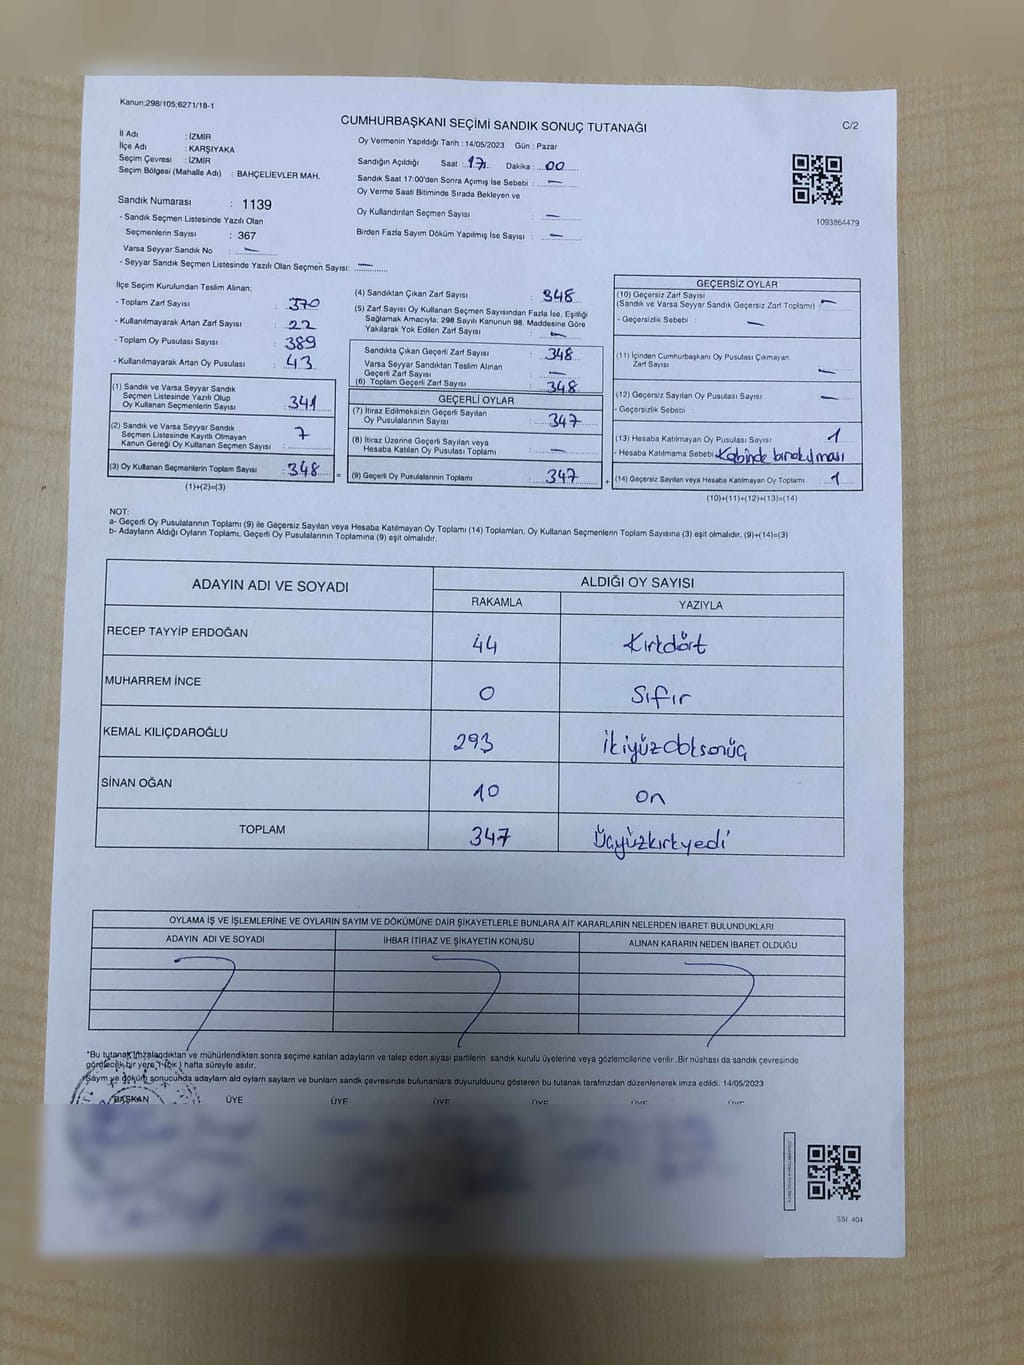 Kanun;298/105;6271/18-1
CUMHURBAŞKANI SEÇİMİ SANDIK SONUÇ TUTANAĞI
C/2
İl Adı : İZMİR
İlçe Adı : KARŞIYAKA
Seçim Çevresi : İZMİR
Seçim Bölgesi (Mahalle Adı) : BAHÇELİEVLER MAH.
Sandık Numarası : 1139
- Sandık Seçmen Listesinde Yazılı Olan
Seçmenlerin Sayısı : 367
Varsa Seyyar Sandık No : —
- Seyyar Sandık Seçmen Listesinde Yazılı Olan Seçmen Sayısı: —
Oy Vermenin Yapıldığı Tarih : 14/05/2023 Gün : Pazar
Sandığın Açıldığı Saat : 17 Dakika : 00
Sandık Saat 17:00'den Sonra Açımış İse Sebebi : —
Oy Verme Saati Bitiminde Sırada Bekleyen ve
Oy Kullandırılan Seçmen Sayısı : —
Birden Fazla Sayım Döküm Yapılmış İse Sayısı : —
1093864479
İlçe Seçim Kurulundan Teslim Alınan:
- Toplam Zarf Sayısı : 370
- Kullanılmayarak Artan Zarf Sayısı : 22
- Toplam Oy Pusulası Sayısı : 389
- Kullanılmayarak Artan Oy Pusulası : 43
(1) Sandık ve Varsa Seyyar Sandık
Seçmen Listesinde Yazılı Olup
Oy Kullanan Seçmenlerin Sayısı : 341
(2) Sandık ve Varsa Seyyar Sandık
Seçmen Listesinde Kayıtlı Olmayan
Kanun Gereği Oy Kullanan Seçmen Sayısı : 7
(3) Oy Kullanan Seçmenlerin Toplam Sayısı : 348
(1)+(2)=(3)
=
(4) Sandıktan Çıkan Zarf Sayısı : 348
(5) Zarf Sayısı Oy Kullanan Seçmen Sayısından Fazla İse, Eşitliği
Sağlamak Amacıyla; 298 Sayılı Kanunun 98. Maddesine Göre
Yakılarak Yok Edilen Zarf Sayısı : —
Sandıkta Çıkan Geçerli Zarf Sayısı : 348
Varsa Seyyar Sandıktan Teslim Alınan
Geçerli Zarf Sayısı : —
(6) Toplam Geçerli Zarf Sayısı : 348
GEÇERLİ OYLAR
(7) İtiraz Edilmeksizin Geçerli Sayılan
Oy Pusulalarının Sayısı : 347
(8) İtiraz Üzerine Geçerli Sayılan veya
Hesaba Katılan Oy Pusulası Toplamı : —
(9) Geçerli Oy Pusulalarının Toplamı : 347
+
GEÇERSİZ OYLAR
(10) Geçersiz Zarf Sayısı
(Sandık ve Varsa Seyyar Sandık Geçersiz Zarf Toplamı) : —
- Geçersizlik Sebebi : —
(11) İçinden Cumhurbaşkanı Oy Pusulası Çıkmayan
Zarf Sayısı : —
(12) Geçersiz Sayılan Oy Pusulası Sayısı : —
- Geçersizlik Sebebi :
(13) Hesaba Katılmayan Oy Pusulası Sayısı : 1
- Hesaba Katılmama Sebebi : Kabinde bırakılması
(14) Geçersiz Sayılan veya Hesaba Katılmayan Oy Toplamı : 1
(10)+(11)+(12)+(13)=(14)
NOT:
a- Geçerli Oy Pusulalarının Toplamı (9) ile Geçersiz Sayılan veya Hesaba Katılmayan Oy Toplamı (14) Toplamları, Oy Kullanan Seçmenlerin Toplam Sayısına (3) eşit olmalıdır. (9)+(14)=(3)
b- Adayların Aldığı Oyların Toplamı, Geçerli Oy Pusulalarının Toplamına (9) eşit olmalıdır.
ADAYIN ADI VE SOYADI
ALDIĞI OY SAYISI
RAKAMLA YAZIYLA
RECEP TAYYİP ERDOĞAN 44 Kırkdört
MUHARREM İNCE 0 Sıfır
KEMAL KILIÇDAROĞLU 293 İkiyüzdoksanüç
SİNAN OĞAN 10 on
TOPLAM 347 Üçyüzkırkyedi
OYLAMA İŞ VE İŞLEMLERİNE VE OYLARIN SAYIM VE DÖKÜMÜNE DAİR ŞİKAYETLERLE BUNLARA AİT KARARLARIN NELERDEN İBARET BULUNDUKLARI
ADAYIN ADI VE SOYADI İHBAR İTİRAZ VE ŞİKAYETİN KONUSU ALINAN KARARIN NEDEN İBARET OLDUĞU
*Bu tutanak imzalandıktan ve mühürlendikten sonra seçime katılan adayların ve talep eden siyasi partilerin sandık kurulu üyelerine veya gözlemcilerine verilir .Bir nüshası da sandık çevresinde
görülecek bir yere 1 (bir ) hafta süreyle asılır.
*Sayım ve döküm sonucunda adayların ald oyların saylarn ve bunların sandk çevresinde bulunanlara duyurulduunu gösteren bu tutanak tarafmzdan düzenlenerek imza edildi. 14/05/2023
BAŞKAN ÜYE ÜYE ÜYE ÜYE ÜYE ÜYE
SSI 404